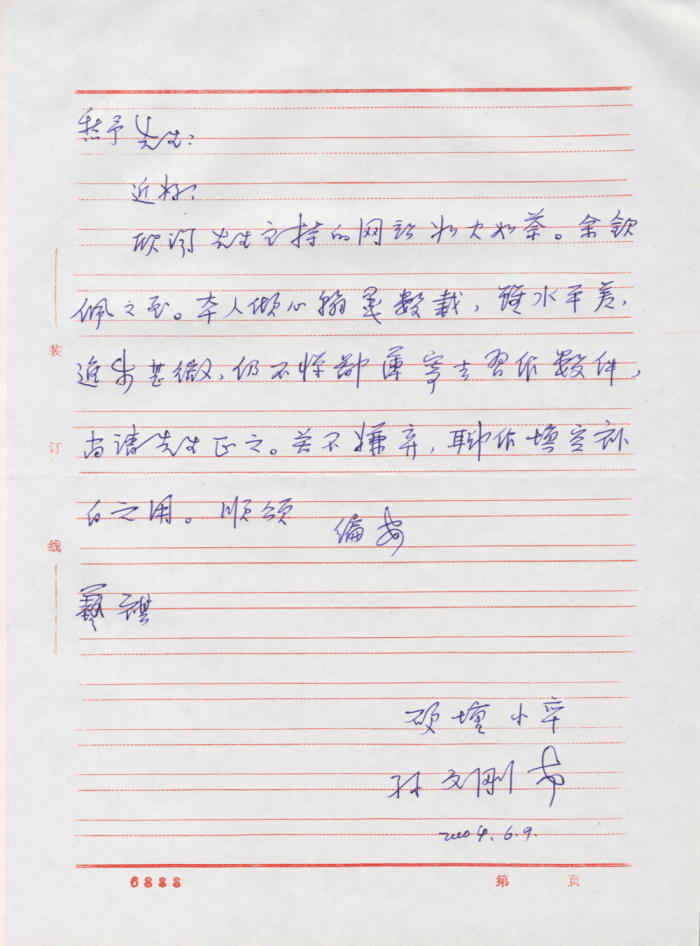 先生:
近好!
欣闻先生主持的网站如火如荼。余钦
佩之至。本人倾心翰墨数载,虽水平差,
进步甚微,仍不惮鄙薄寄去习作数件,
尚请先生正之。若不嫌弃,聊作填空补
白之用。顺颂
编安
艺祺
砚坛小卒
孙文刚
2004.6.9.
装
订
线
6888
第 页